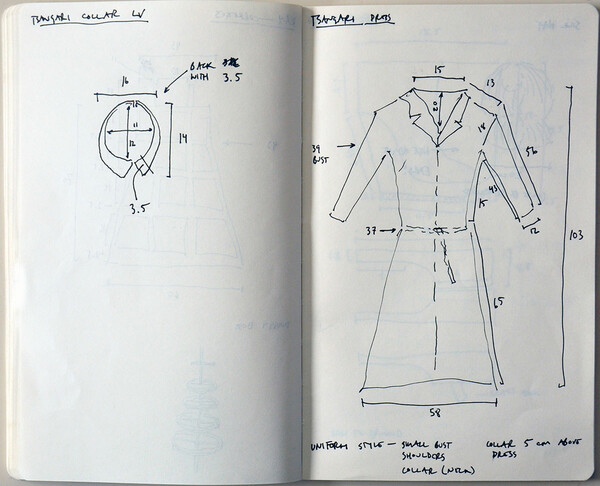 TSANGARI COLLAR LV
BACK
WITH 3.5
16
11
12
14
3.5
TSANGARI DRESS
15
13
20
16
39
BUST
56
43
15
12
37
103
65
58
UNIFORM STYLE — SMALL BUST
SHOULDERS
COLLAR (NECK)
COLLAR 5 CM ABOVE
DRESS